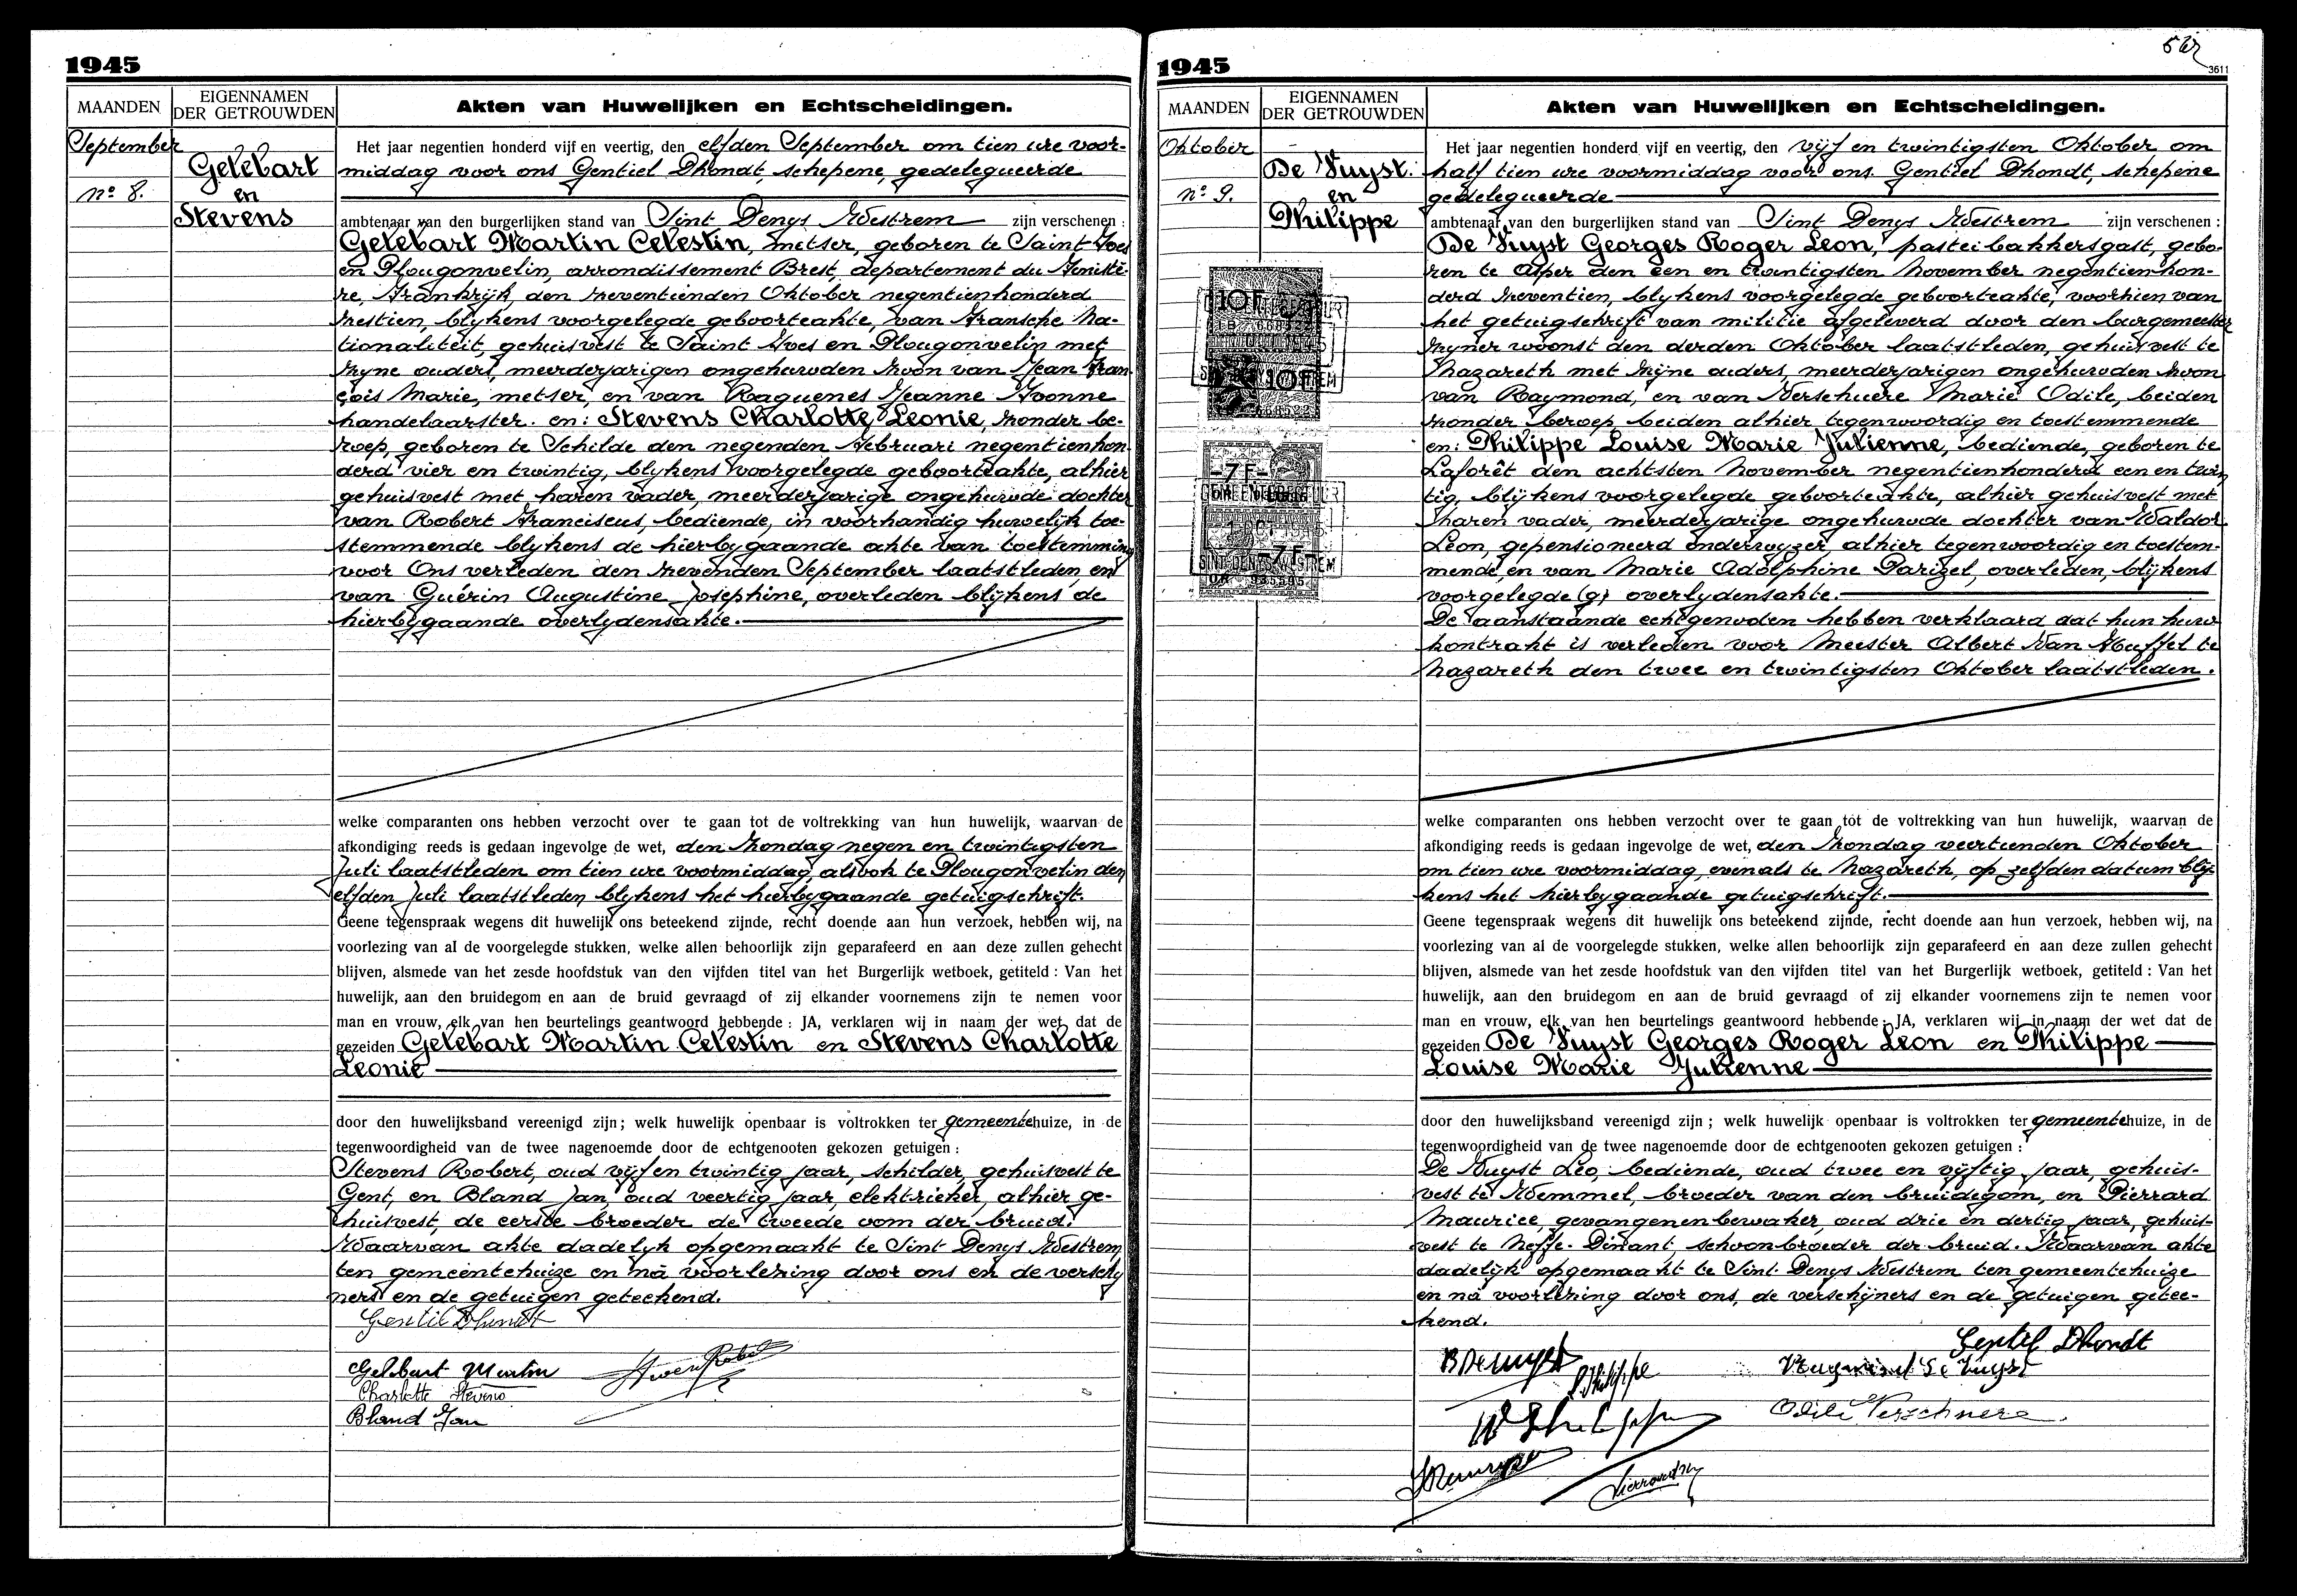 1945
MAANDEN
EIGENNAMEN
DER GETROUWDEN
Akten van Huwelijken en Echtscheidingen.
September
nº 8.
Gelebart
en
Stevens
Het jaar negentien honderd vijf en veertig, den elfden September om tien ure voor-
middag voor ons Gentiel Dhondt, schepene, gedelegueerde
ambtenaar van den burgerlijken stand van Sint Denys Westrem zijn verschenen :
Gelebart Martin Celestin, metser, geboren te Saint-Yves
en Plougonvelin, arrondissement Brest, departement du Finistè-
re, Frankrijk, den zeventienden Oktober negentienhonderd
zestien, blykens voorgelegde geboorteakte, van Fransche Na-
tionaliteit, gehuisvest te Saint Yves en Plougonvelin met
zyne ouders, meerderjarigen ongehuwden zoon van Jean Fran
çois Marie, metser, en van Raguenes Jeanne Yvonne
handelaarster. en: Stevens Charlotte Leonie, zonder be-
roep, geboren te Schilde den negenden Februari negentienhon
derd vier en twintig, blykens voorgelegde geboorteakte, alhier
gehuisvest met haren vader, meerderjarige ongehuwde dochter
van Robert Franciscus, bediende, in voorhandig huwelijk toe-
stemmende blykens de hierbygaande akte van toestemming
voor Ons verleden den zevenden September laatstleden, en
van Guérin Augustine Josephine, overleden blykens de
hierbygaande overlydensakte.
welke comparanten ons hebben verzocht over te gaan tot de voltrekking van hun huwelijk, waarvan de
afkondiging reeds is gedaan ingevolge de wet, den Zondag negen en twintigsten
Juli laatstleden om tien ure voormiddag, alsook te Plougonvelin den
elfden Juli laatstleden blykens het hierbygaande getuigschrift.
Geene tegenspraak wegens dit huwelijk ons beteekend zijnde, recht doende aan hun verzoek, hebben wij, na
voorlezing van al de voorgelegde stukken, welke allen behoorlijk zijn geparafeerd en aan deze zullen gehecht
blijven, alsmede van het zesde hoofdstuk van den vijfden titel van het Burgerlijk wetboek, getiteld : Van het
huwelijk, aan den bruidegom en aan de bruid gevraagd of zij elkander voornemens zijn te nemen voor
man en vrouw, elk van hen beurtelings geantwoord hebbende : JA, verklaren wij in naam der wet dat de
gezeiden Gelebart Martin Celestin en Stevens Charlotte
Leonie
door den huwelijksband vereenigd zijn ; welk huwelijk openbaar is voltrokken ter gemeentehuize, in de
tegenwoordigheid van de twee nagenoemde door de echtgenooten gekozen getuigen :
Stevens Robert, oud vijf en twintig jaar, schilder, gehuisvest te
Gent, en Bland Jan, oud veertig jaar, elektrieker, alhier ge-
huisvest, de eerste broeder de tweede oom der bruid.
Waarvan akte dadelyk opgemaakt te Sint Denys Westrem
ten gemeentehuize en na voorlezing door ons en de verschy
ners en de getuigen geteekend.
Gentil Dhondt
Gelebart Martin
Charlotte Stevens
Bland Jan
1945
3611
MAANDEN
EIGENNAMEN
DER GETROUWDEN
Akten van Huwelijken en Echtscheidingen.
Oktober
nº 9.
De Vuyst.
en
Philippe
Het jaar negentien honderd vijf en veertig, den vijf en twintigsten Oktober om
half tien ure voormiddag voor ons Gentiel Dhondt, schepene
gedelegueerde
ambtenaar van den burgerlijken stand van Sint Denys Westrem zijn verschenen :
De Vuyst Georges Roger Leon, pasteibakkersgast, gebo-
ren te Asper den een en twintigsten November negentienhon-
derd zeventien, blykens voorgelegde geboorteakte, voorzien van
het getuigschrift van militie afgeleverd door den burgemeester
zyner woonst den derden Oktober laatstleden, gehuisvest te
Nazareth met zijne ouders, meerderjarigen ongehuwden zoon
van Raymond, en van Verschuere Marie Odile, beiden
zonder beroep beiden alhier tegenwoordig en toestemmende
en: Philippe Louise Marie Julienne, bediende, geboren te
Laforêt den achtsten November negentienhonderd een en twin
tig, blijkens voorgelegde geboorteakte, alhier gehuisvest met
haren vader, meerderjarige ongehuwde dochter van Waldor
Léon, gepensioneerd onderwyzer, alhier tegenwoordig en toestem-
mende, en van Marie Adolphine Parizel, overleden, blijkens
voorgelegde (g) overlydensakte.
De aanstaande echtgenoden hebben verklaard dat hun huw
kontrakt is verleden voor Meester Albert Van Huffel te
Nazareth den twee en twintigsten Oktober laatstleden.
10F
-7F-
welke comparanten ons hebben verzocht over te gaan tot de voltrekking van hun huwelijk, waarvan de
afkondiging reeds is gedaan ingevolge de wet, den Zondag veertienden Oktober
om tien ure voormiddag, evenals te Nazareth, op zelfden datum blij-
kens het hierbygaande getuigschrift.
Geene tegenspraak wegens dit huwelijk ons beteekend zijnde, recht doende aan hun verzoek, hebben wij, na
voorlezing van al de voorgelegde stukken, welke allen behoorlijk zijn geparafeerd en aan deze zullen gehecht
blijven, alsmede van het zesde hoofdstuk van den vijfden titel van het Burgerlijk wetboek, getiteld : Van het
huwelijk, aan den bruidegom en aan de bruid gevraagd of zij elkander voornemens zijn te nemen voor
man en vrouw, elk van hen beurtelings geantwoord hebbende : JA, verklaren wij in naam der wet dat de
gezeiden De Vuyst Georges Roger Leon en Philippe
Louise Marie Julienne
door den huwelijksband vereenigd zijn ; welk huwelijk openbaar is voltrokken ter gemeentehuize, in de
tegenwoordigheid van de twee nagenoemde door de echtgenooten gekozen getuigen :
De Vuyst Léo, bediende, oud twee en vyftig jaar, gehuis-
vest te Wemmel, broeder van den bruidegom, en Pierrard
Maurice, gevangenenbewaker, oud drie en dertig jaar, gehuis-
vest te Neffe-Dinant, schoonbroeder der bruid. Waarvan akte
dadelijk opgemaakt te Sint Denys Westrem ten gemeentehuize
en na voorlezing door ons, de verschijners en de getuigen getee-
kend.
Gentil Dhondt
L. Philippe
Raymond De Vuyst
Odile Verschuere